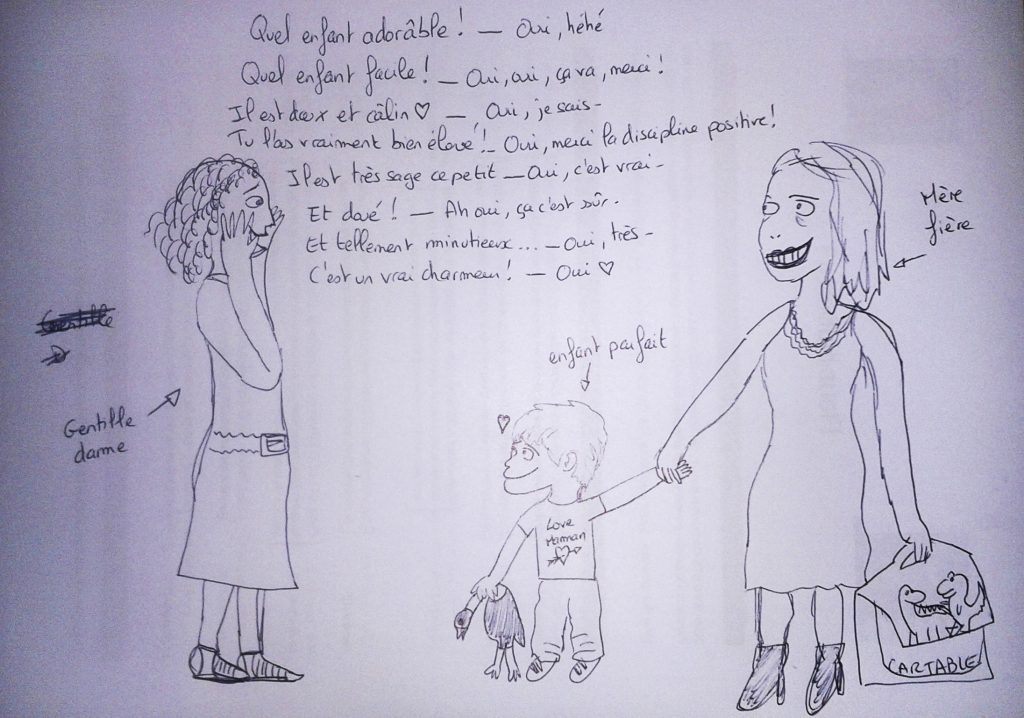 Quel enfant adorâble ! — Oui, héhé
Quel enfant facile ! — Oui, oui, ça va, merci !
Il est doux et câlin ♡ — Oui, je sais -
Tu l'as vraiment bien élevé ! — Oui, merci la discipline positive !
Il est très sage ce petit — Oui, c'est vrai -
Et doué ! — Ah oui, ça c'est sûr.
Et tellement minutieux... — Oui, très -
C'est un vrai charmeur ! — Oui ♡
Mère
fière
enfant parfait
Gentille
Gentille
dame
Love
Maman
CARTABLE